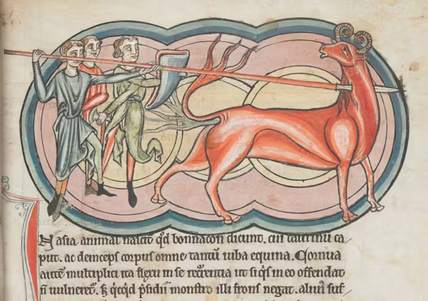 In asia animal nascit̄ qd̄ bonnacon dicunt. cui taurinū ca
put. ac deinceps corpus omne tantū iuba equina. Cornua
autē multiplici ita flexu in se recurrentia ut si q̄s in eo offendat
ñ vulneret̄. sꝫ q̄cqd p̄sidii monstro illi frons negat. aluus suf